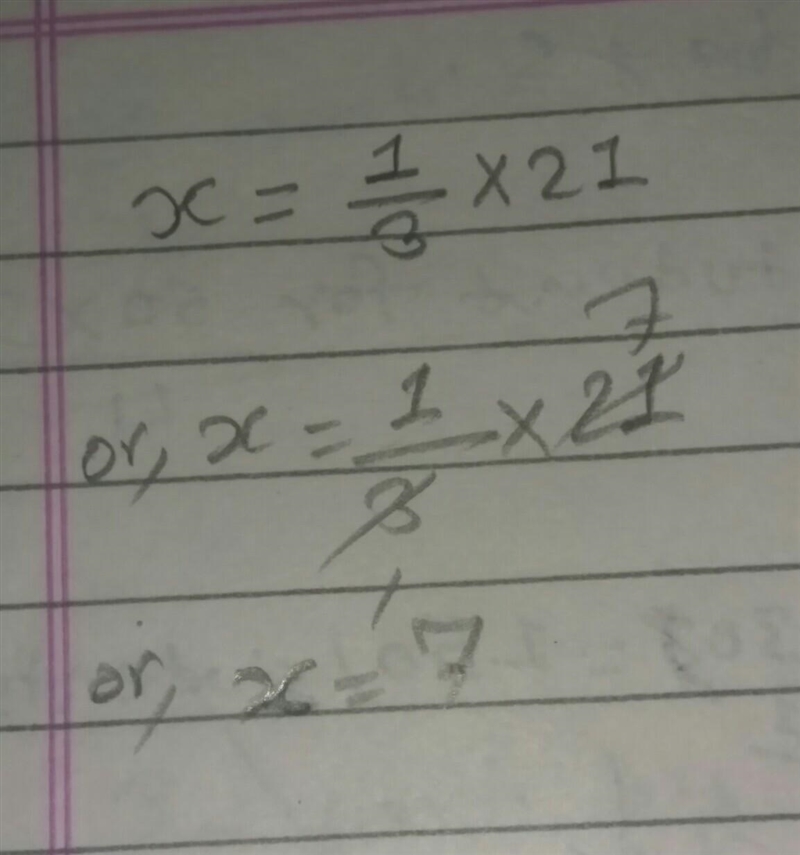 x = 1/3 × 21
7
or, x = 1/3 × 21
1
or, x = 7